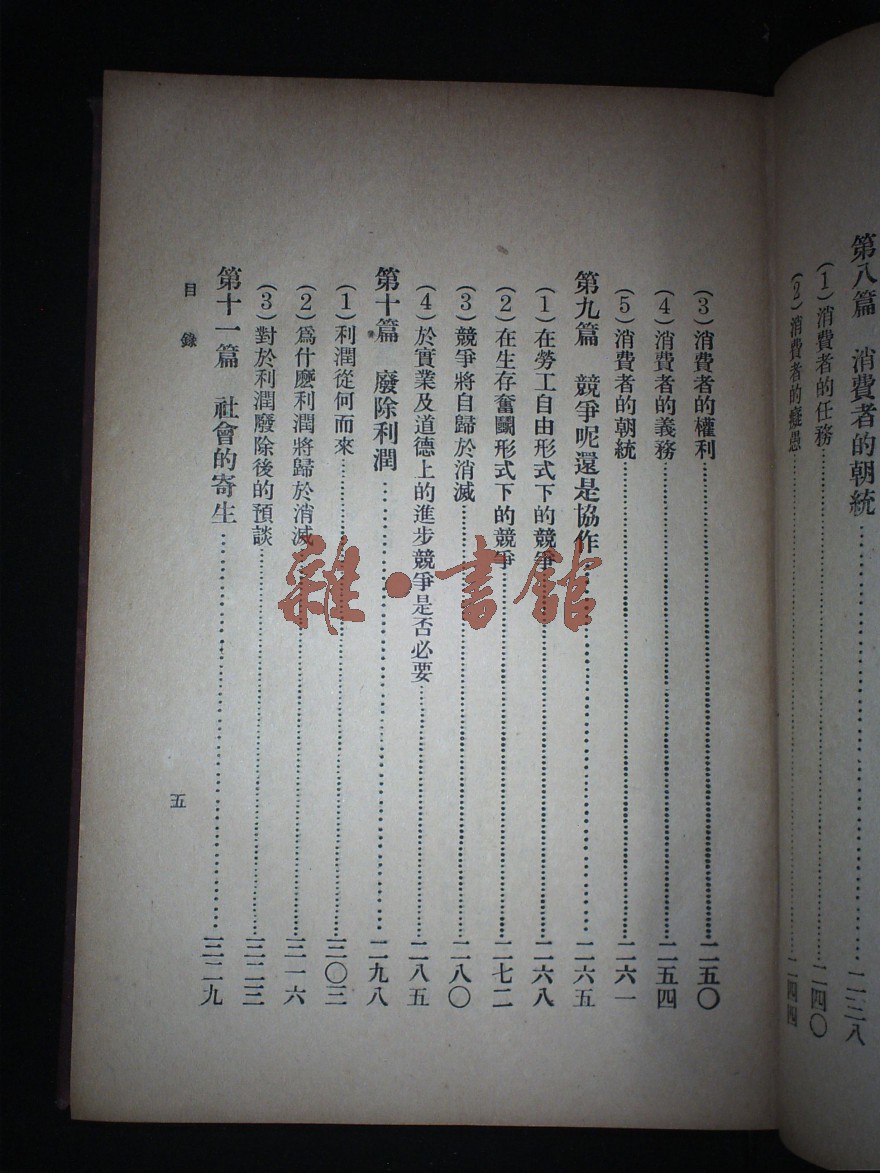 第八篇 消費者的朝統……二三八
(1)消費者的任務……二四〇
(2)消費者的癡愚……二四四
(3)消費者的權利……二五〇
(4)消費者的義務……二五四
(5)消費者的朝統……二六一
第九篇 競爭呢還是協作……二六五
(1)在勞工自由形式下的競爭……二六八
(2)在生存奮鬭形式下的競爭……二七二
(3)競爭將自歸於消滅……二八〇
(4)於實業及道德上的進步競爭是否必要……二八五
第十篇 廢除利潤……二九八
(1)利潤從何而來……三〇三
(2)爲什麽利潤將歸於消滅……三一六
(3)對於利潤廢除後的預談……三二三
第十一篇 社會的寄生……三二九
目錄
五
雜·書館